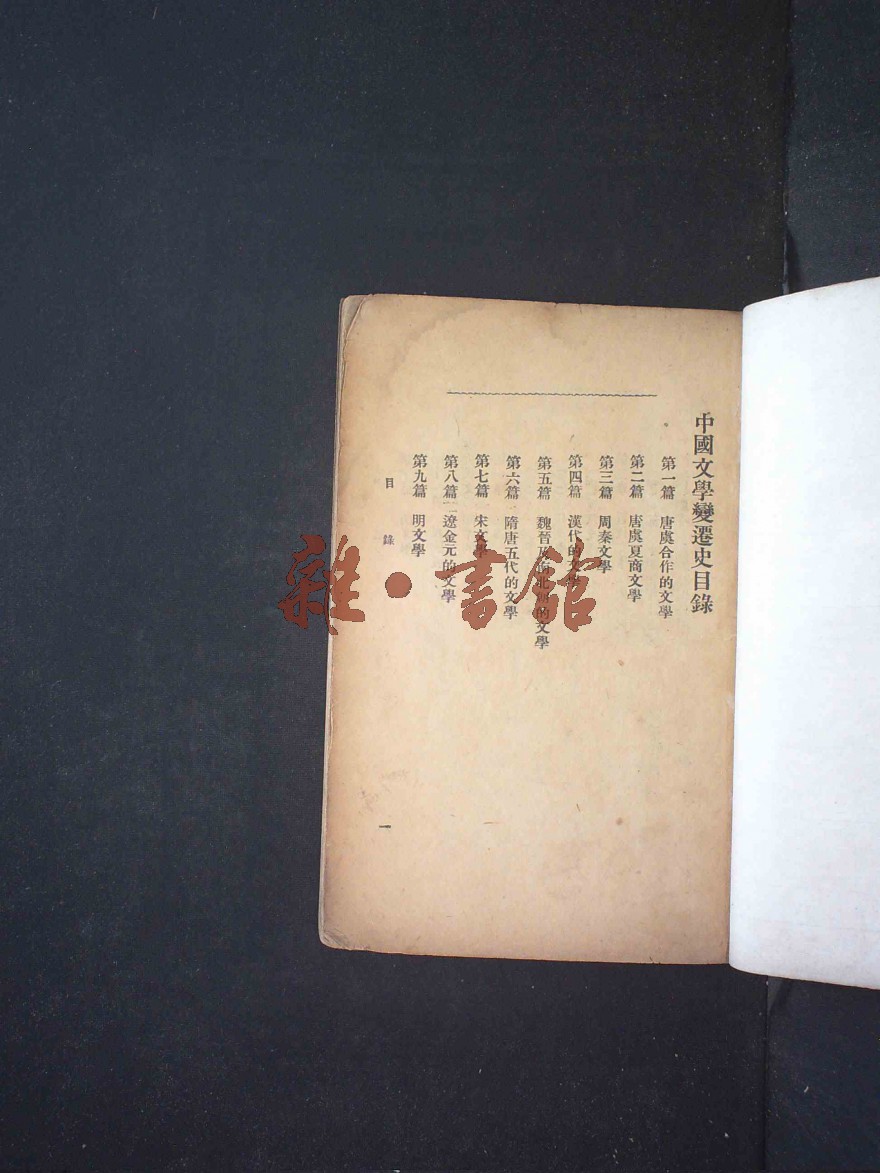 中國文學變遷史目錄
第一篇 唐虞合作的文學
第二篇 唐虞夏商文學
第三篇 周秦文學
第四篇 漢代的文學
第五篇 魏晉及南北朝的文學
第六篇 隋唐五代的文學
第七篇 宋文學
第八篇 遼金元的文學
第九篇 明文學
目錄
一
雜·書館